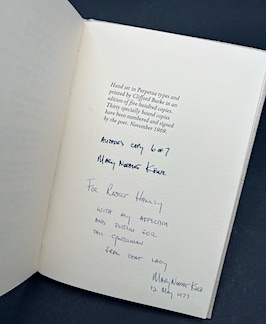 Hand set in Perpetua types and
printed by Clifford Burke in an
edition of five hundred copies.
Thirty specially bound copies
have been numbered and signed
by the poet. November 1969.
AUTHOR'S COPY 6 OF 7
MARY NORBERT KÖRTE
FOR ROBERT HAWLEY
WITH MY AFFECTION
AND ESTEEM FOR
THE GENTLEMAN
FROM THAT LADY
MARY NORBERT KÖRTE
12 MAY 1971